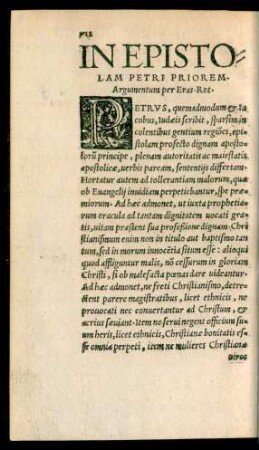 IN EPISTO=
LAM PETRI PRIOREM.
Argumentum per Eras. Rot.
PETRVS, quemadmodum & Ia
cobus, Iudæis scribit, sparsim in
colentibus gentium regiões, epi
stolam profecto dignam aposto
lorũ principe, plenam autoritatis ac maiestatis
apostolicæ, uerbis parcam, sententijs differtam.
Hortatur autem ad tollerantiam malorum, quæ
ob Euangelij inuidiam perpetiebantur, spe præ
miorum. Ad hæc admonet, ut iuxta prophetia=
rum oracula ad tantam dignitatem uocati gra=
tis, uitam præstent sua professione dignam. Chri
stianismum enim non in titulo aut baptismo tan
tum, sed in morum innocẽtia situm esse: alioqui
quod affliguntur malis, nõ cessurum in gloriam
Christi, si ob malefacta pœnas dare uideantur.
Ad hæc admonet, ne freti Christianismo, detre=
ctent parere magistratibus, licet ethnicis, ne
prouocati nec conuertantur ad Christum, &
acrius sæuiant. Item ne serui negent officium su
um heris, licet ethnicis, Christianæ bonitatis es=
se omnia perpeti, item ne mulieres Christianæ
uiros